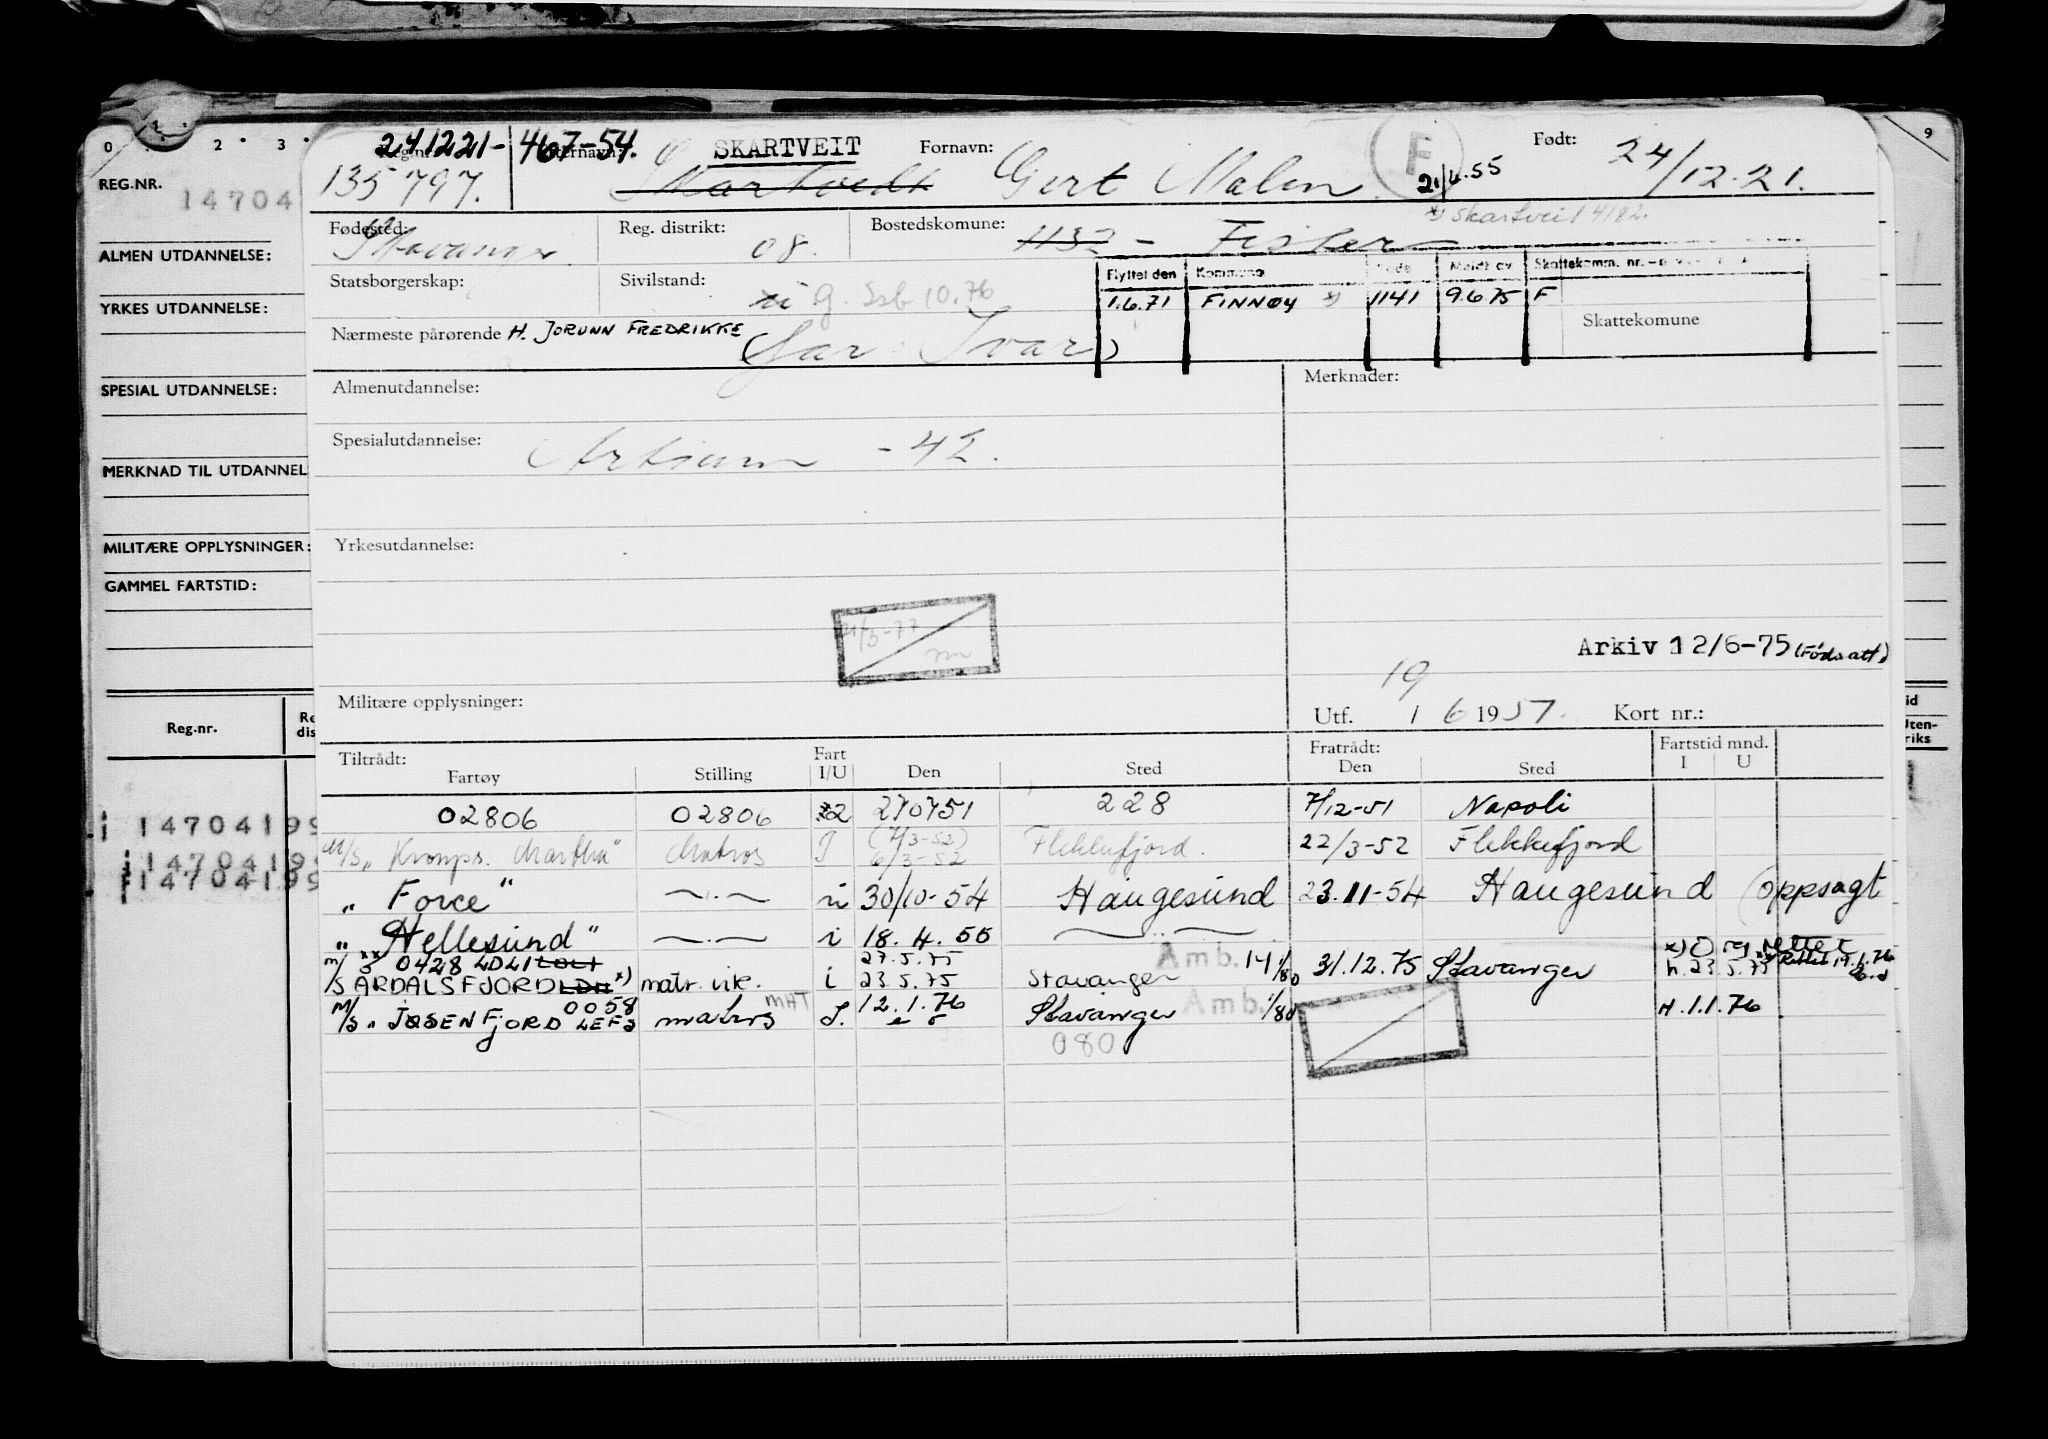 0 2 3 9
REG.NR. 14704
ALMEN UTDANNELSE:
YRKES UTDANNELSE:
SPESIAL UTDANNELSE:
MERKNAD TIL UTDANNEL
MILITÆRE OPPLYSNINGER:
GAMMEL FARTSTID:
Reg.nr.
i 14704199
i 14704199
i 14704199
241221- 467-54. SKARTVEIT Fornavn: F Født:
135797. Skartvedt Gert Malen 21/4.55 24/12.21.
*) Skartveit 4182.
Fødested: Stavanger Reg. distrikt: 08. Bostedskomune: 1132 - Fister
Statsborgerskap: Sivilstand: ui g. Ssb 10.76
Flyttet den Kommune Kode Meldt av Skattekomm. nr.
1.6.71 FINNØY *) 1141 9.6.75 F
Skattekomune
Nærmeste pårørende H. JORUNN FREDRIKKE (Far: Ivar)
Almenutdannelse: Merknader:
Spesialutdannelse: Artium - 42.
Yrkesutdannelse:
21/3-77
Arkiv 12/6-75 (Føds att)
19
Militære opplysninger: Utf. 1 6 1957. Kort nr.:
Tiltrådt: Fart Fratrådt: Fartstid mnd.
Fartøy Stilling I/U Den Sted Den Sted I U
02806 02806 2 270751 228 7/12-51 Napoli
M/S „Kronprs. Martha" Matros I (7/3-52) 6/3-52 Flekkefjord. 22/3-52 Flekkefjord
„ Force" —.— ui 30/10-54 Haugesund 23.11-54 Haugesund (oppsagt
„ Hellesund" —.— i 18.4.55 —..—
m/S 0428 LDLI 27.5.75 Amb. 14 1/80 31.12.75 Stavanger
ÅRDALSFJORD *) matr. vik. i 23.5.75 Stavanger h.23.5.75
M/S „JØSENFJORD 0058 LEFJ matros MAT I. 12.1.76 Stavanger Amb. 1/80 H.1.1.76
080